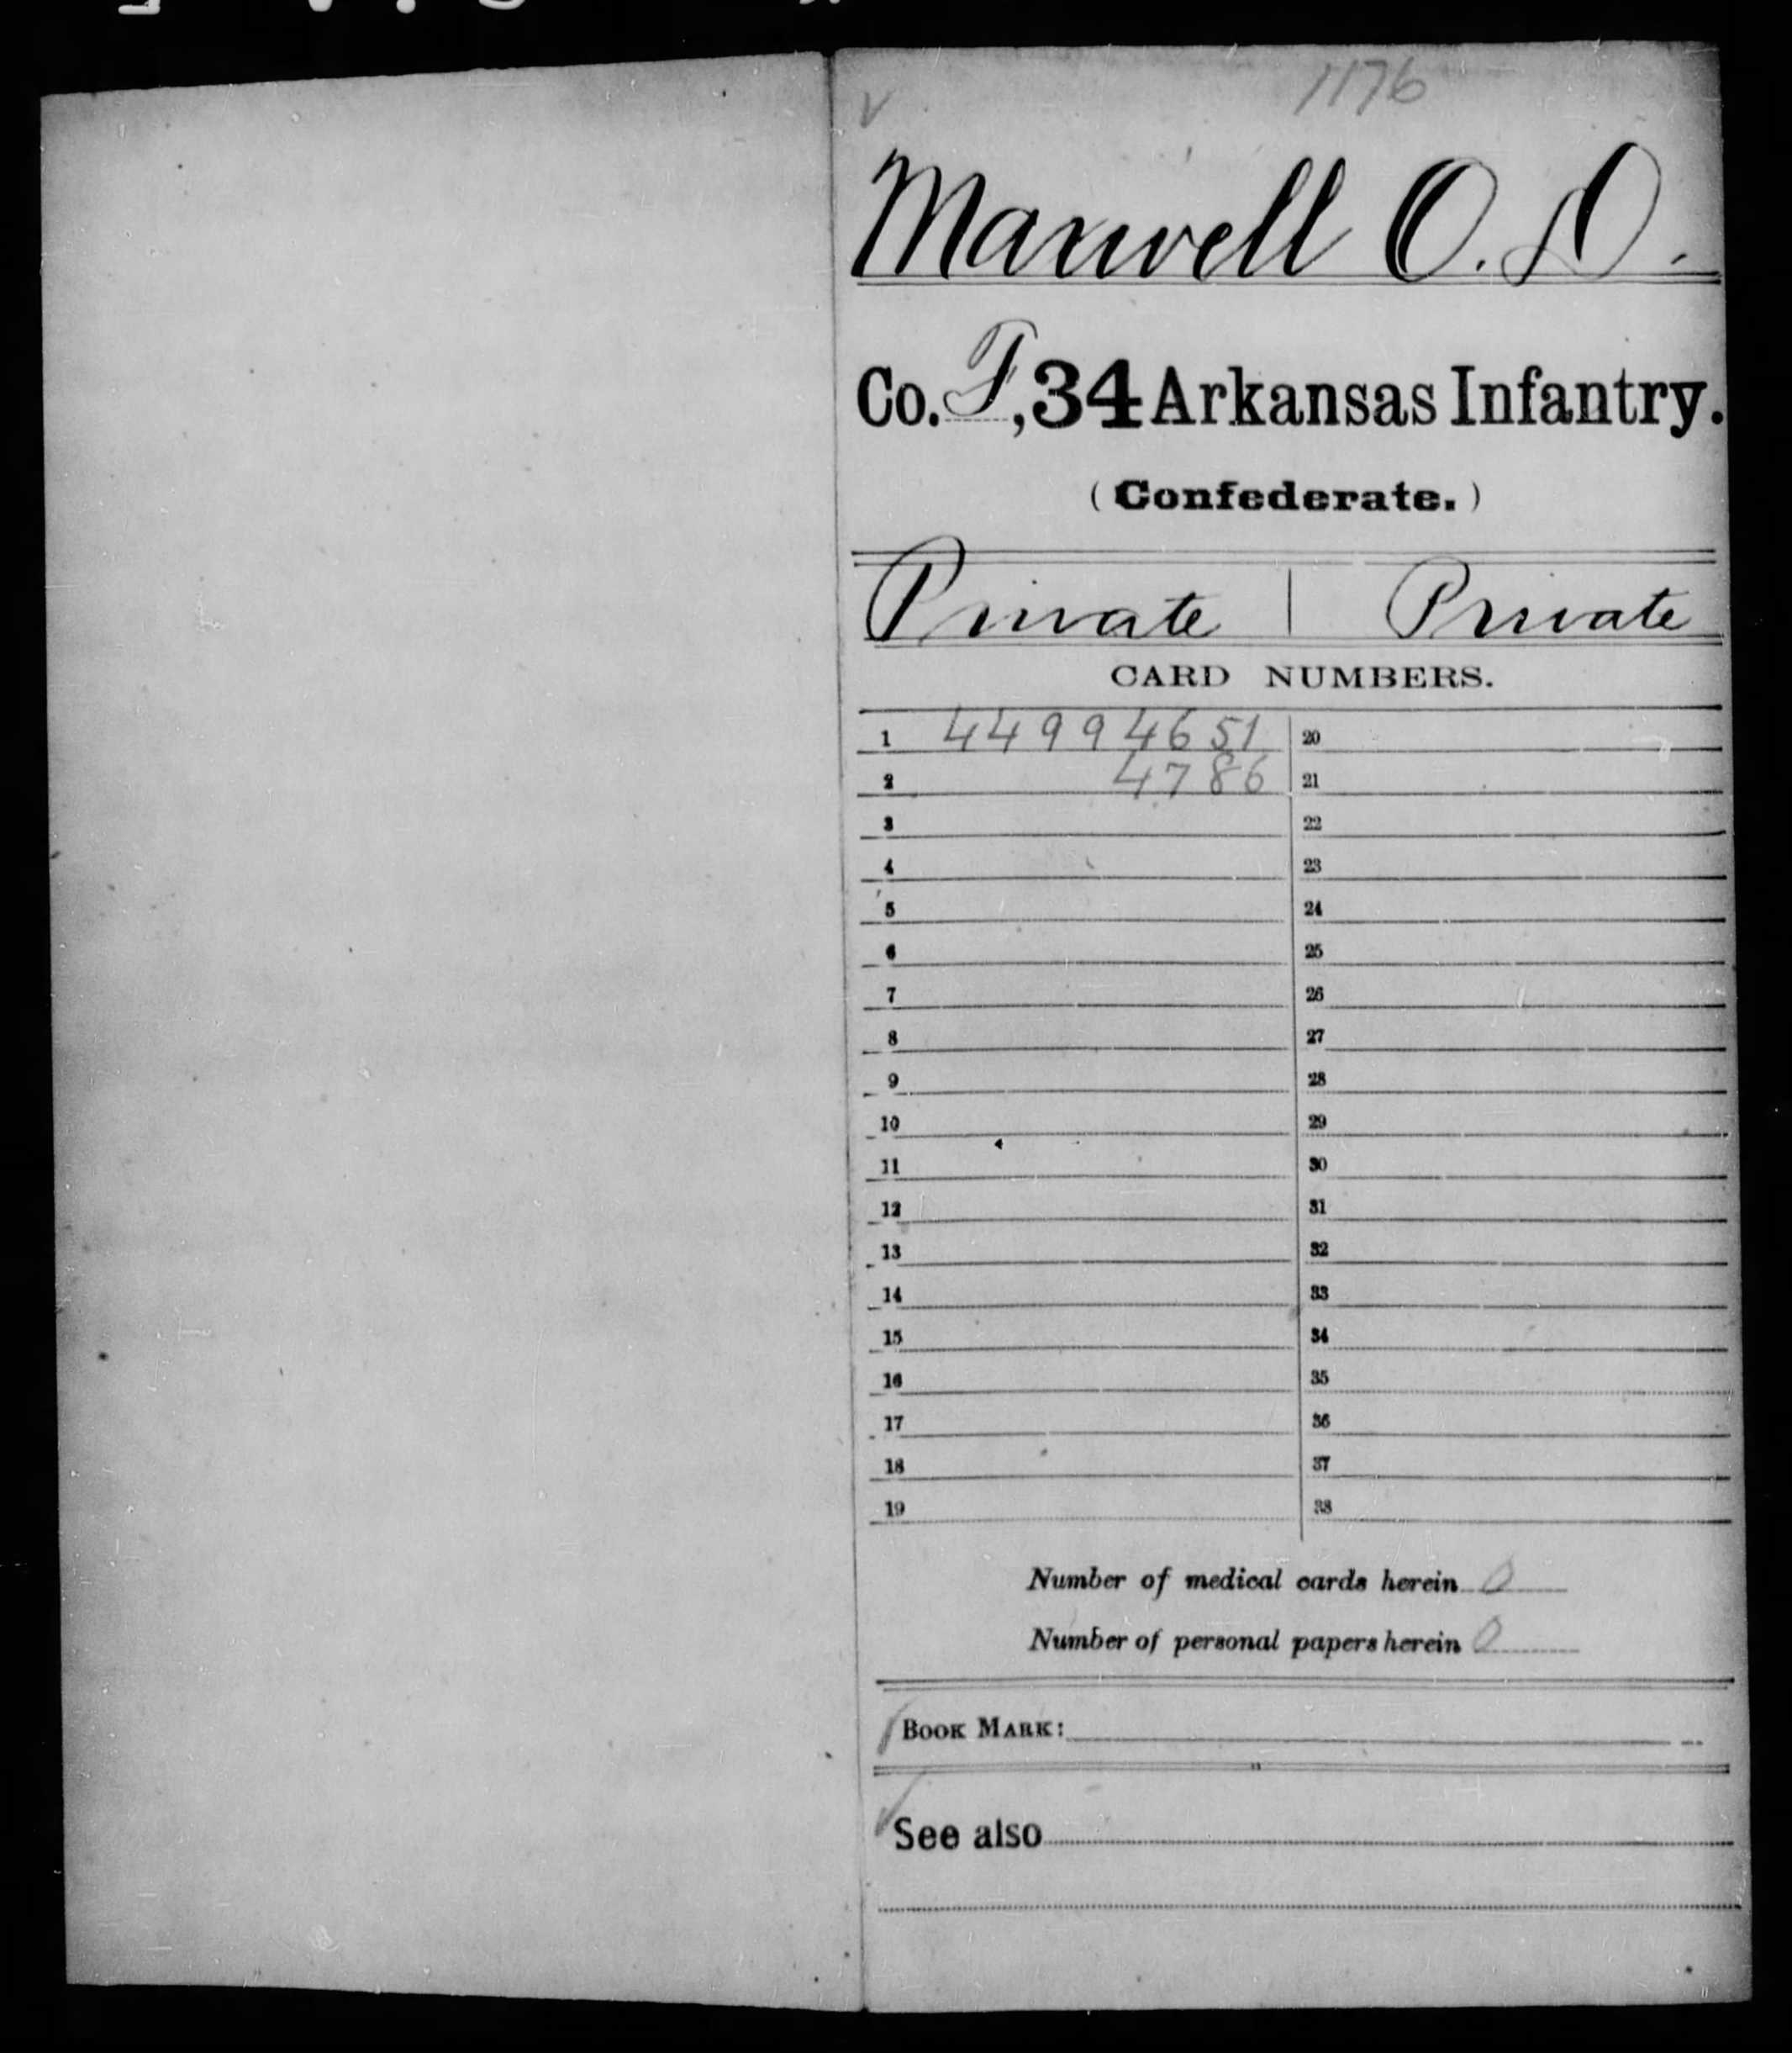 1176
Maxwell O. D.
Co. F, 34 Arkansas Infantry.
(Confederate.)
Private | Private
CARD NUMBERS.
1 44994651 20
2 4786 21
3 22
4 23
5 24
6 25
7 26
8 27
9 28
10 29
11 30
12 31
13 32
14 33
15 34
16 35
17 36
18 37
19 38
Number of medical cards herein 0
Number of personal papers herein 0
BOOK MARK:
See also